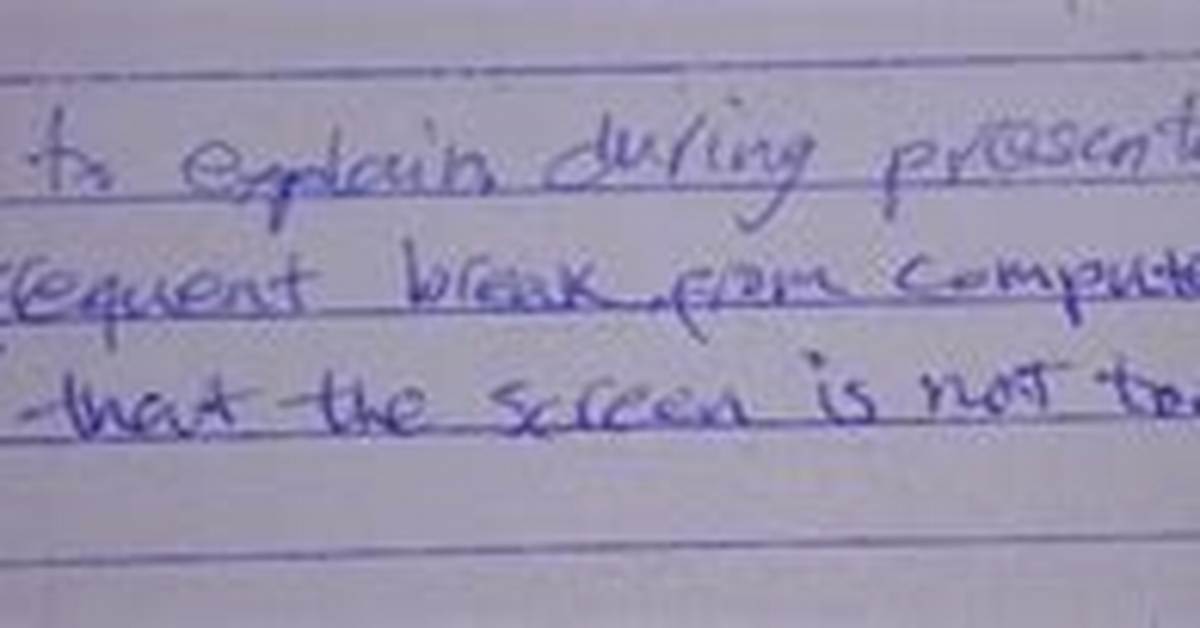 to explain during present
frequent break from compute
that the screen is not to